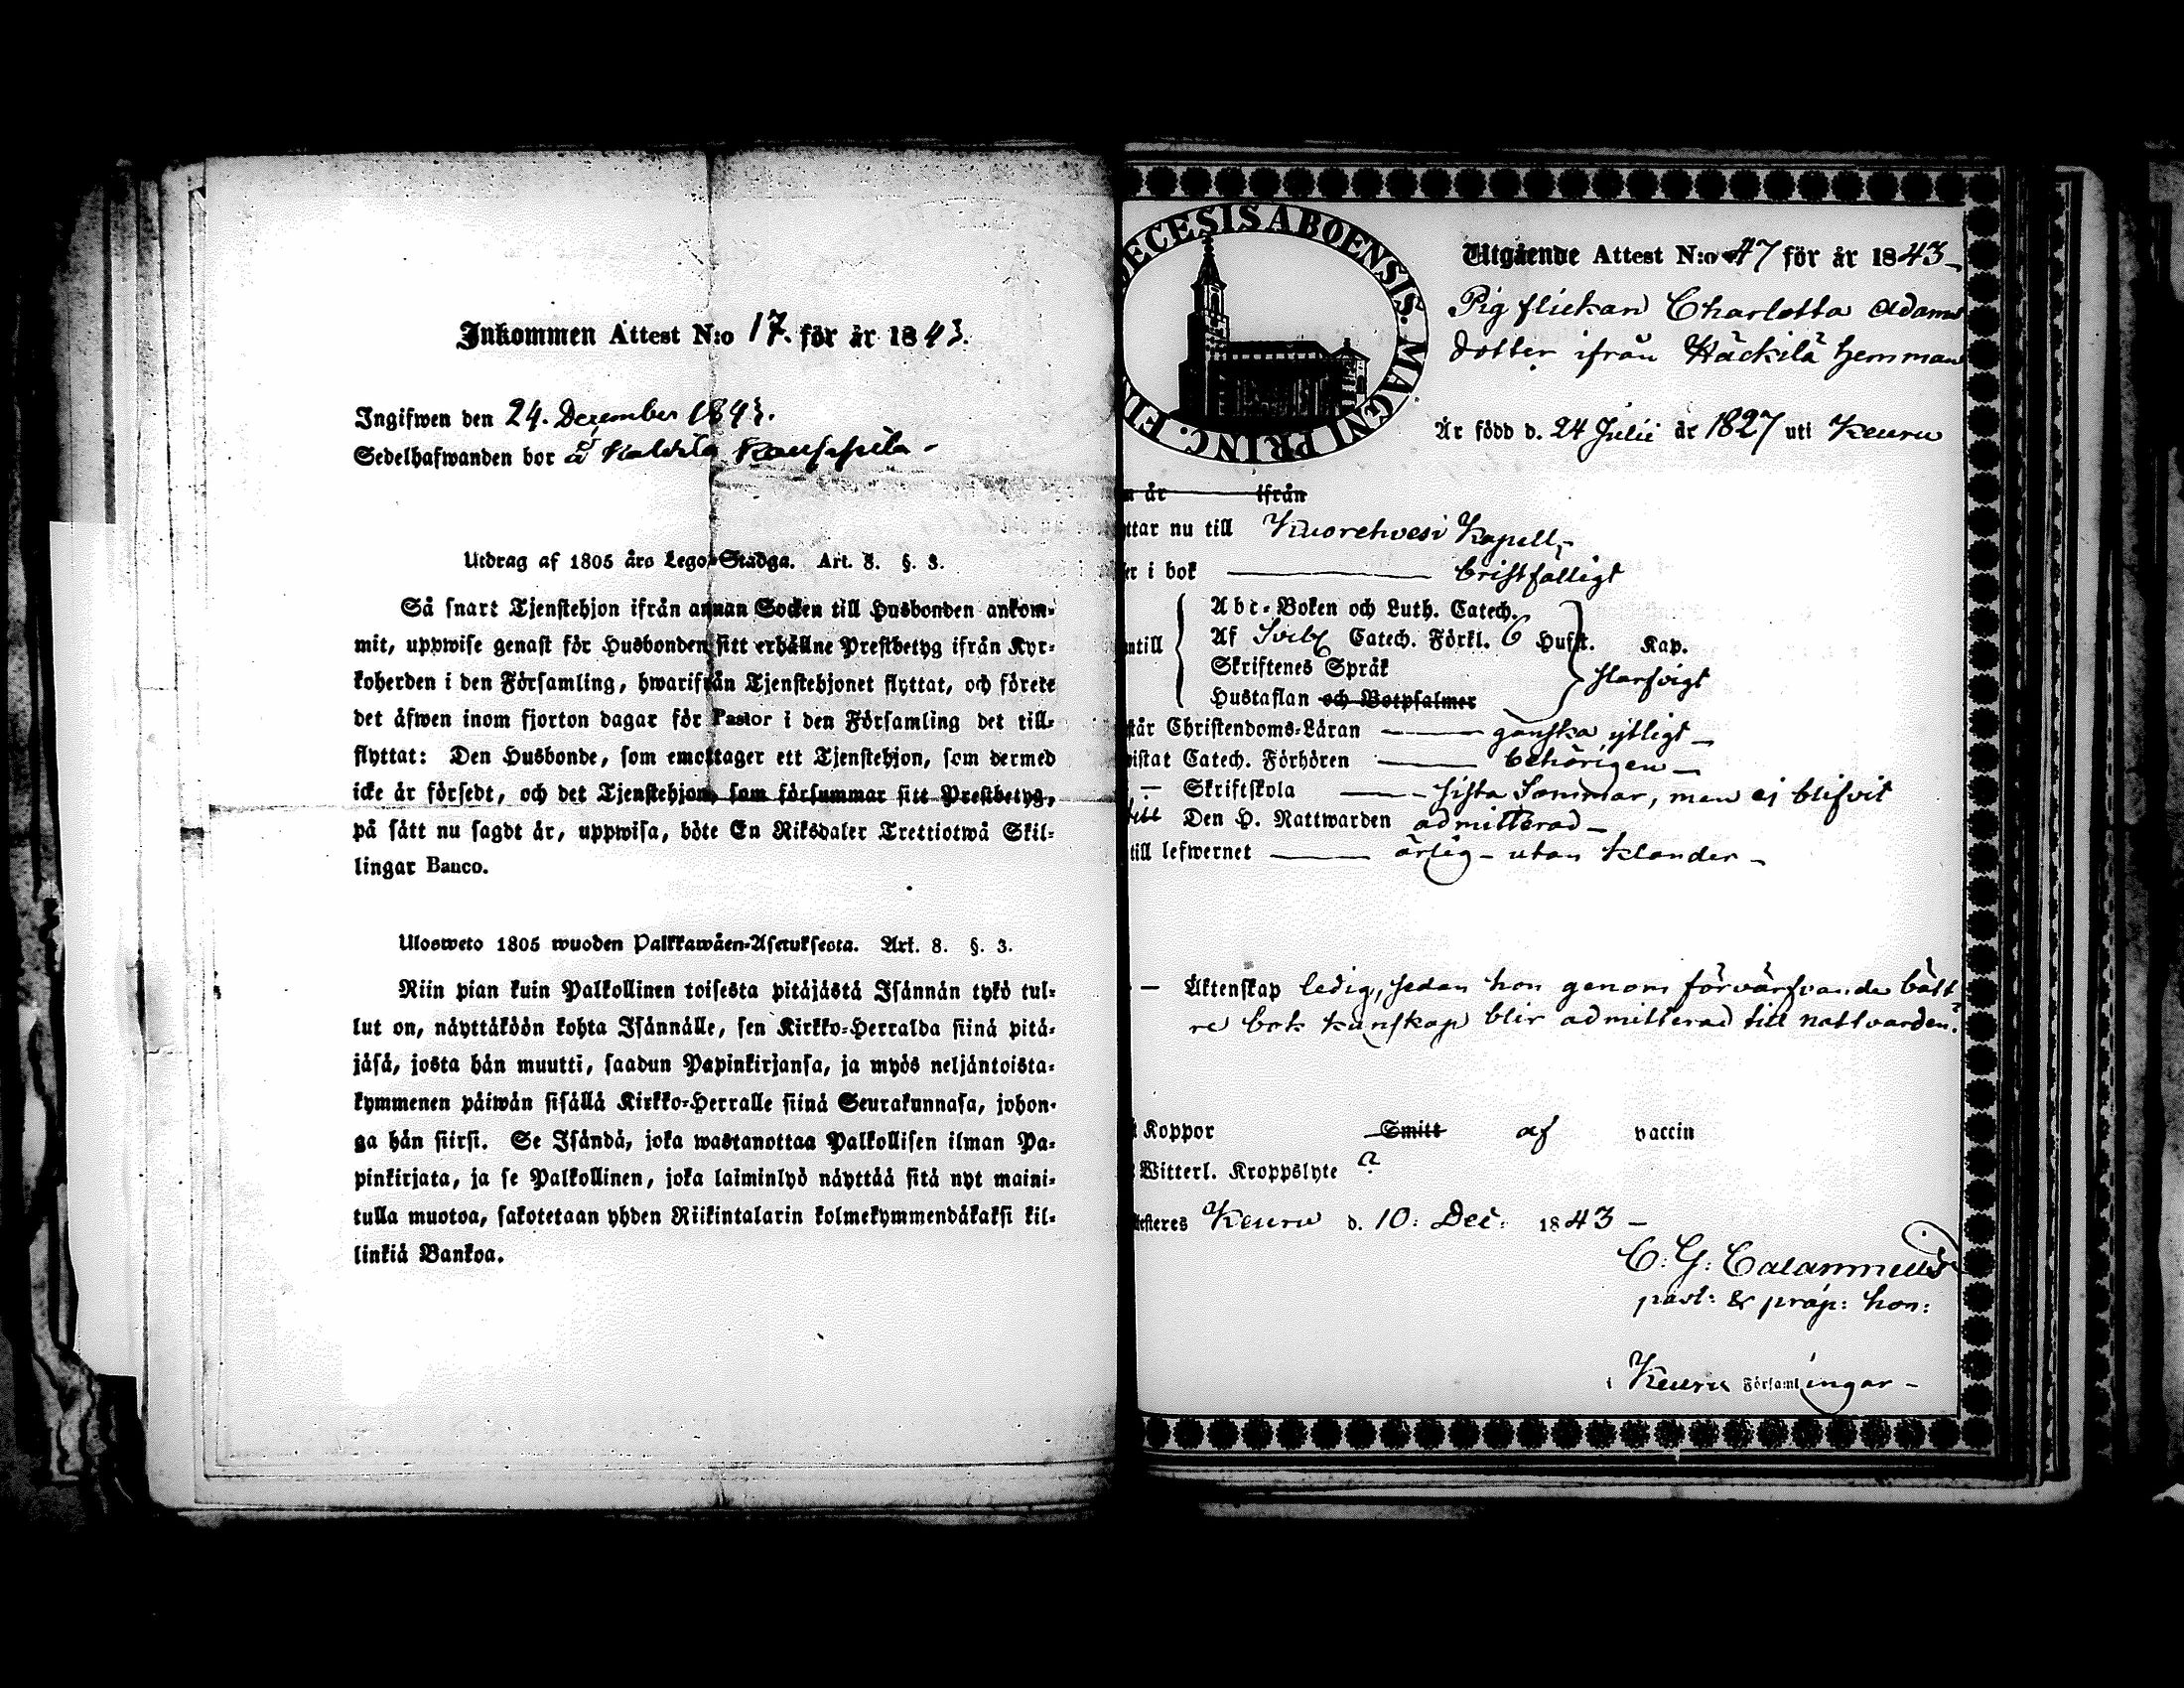 Inkommen Attest N:o 17. för år 1843.
Ingifwen den 24. December 1843.
Sedelhafwanden bor å
Utdrag af 1805 års Lego-Stadga. Art. 8. §. 3.
Så snart Tjenstehjon ifrån annan Socken till Husbonden ankom-
mit, uppwise genast för Husbonden sitt erhållne Prestbetyg ifrån Kyr-
koherden i den Församling, hwarifrån Tjenstehjonet flyttat, och förete
det äfwen inom fjorton dagar för Pastor i den Församling det till-
flyttat: Den Husbonde, som emottager ett Tjenstehjon, som dermed
icke är försedt, och det Tjenstehjon, som försummar sitt Prestbetyg,
på sätt nu sagdt är, uppwisa, böte En Riksdaler Trettiotwå Skil-
lingar Banco.
Ulosweto 1805 wuoden Palkkawäen-Asetuksesta. Art. 8. §. 3.
Niin pian kuin Palkollinen toisesta pitäjästä Isännän tykö tul-
lut on, näyttäköön kohta Isännälle, sen Kirkko-Herralda siinä pitä-
jäsä, josta hän muutti, saadun Papinkirjansa, ja myös neljäntoista-
kymmenen päiwän sisällä Kirkko-Herralle siinä Seurakunnasa, johon-
ga hän siirsi. Se Isändä, joka wastanottaa Palkollisen ilman Pa-
pinkirjata, ja se Palkollinen, joka laiminlyö näyttää sitä nyt maini-
tulla muotoa, sakotetaan yhden Riikintalarin kolmekymmendäkaksi kil-
linkiä Bankoa.
ECESIS ABOENSIS. MAGNI PRINC. FIN
Utgående Attest N:o 47 för år 1843
Pigflickan Charlotta Adams
dotter ifrån Häckilä hemman
Är född d. 24 Julii år 1827 uti Keuru
år ifrån
ttar nu till Kuorehvesi Kapell
er i bok bristfälligt
Abc-Boken och Luth. Catech.
ntill Af Sveb. Catech. Förkl. 6 Hufst. Kap.
Skriftenes Språk slarfvigt
Hustaflan och Botpsalmer
står Christendoms-Läran ganska ytligt
wistat Catech. Förhören behörigen
— Skriftskola sista Sommar, men ej blifvit
till Den H. Nattwarden admitterad
till lefwernet ärlig - utan klander
— Äktenskap ledig, sedan hon genom förvärfvande bätt
re bok kunskap blir admitterad till nattvarden.
Koppor Smitt af vaccin
Witterl. Kroppslyte ?
testeres Keuru d. 10: Dec: 1843
C: G: Calamnius
past: & præp: hon:
i Keuru Församlingar